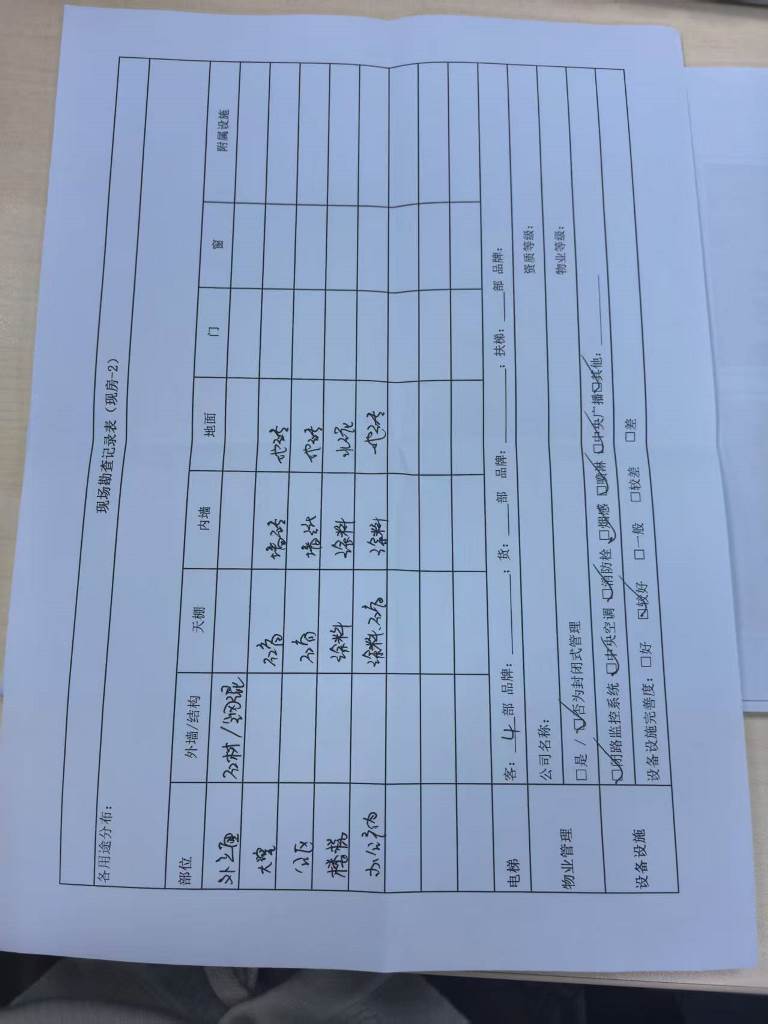 现场勘查记录表（现房-2）
各用途分布：
部位 外墙/结构 天棚 内墙 地面 门 窗 附属设施
外立面 石材/钢混
大堂 石膏 墙砖 地砖
公区 石膏 墙砖 地砖
楼梯 涂料 涂料 水泥
办公室内 涂料、石膏 涂料 地砖
电梯 客：4部 品牌：；货：部 品牌：；扶梯：部 品牌：
物业管理 公司名称： 资质等级：
□是 / ☑否为封闭式管理 物业等级：
设备设施 ☑闭路监控系统 ☑中央空调 ☑消防栓 ☑烟感 ☑喷淋 ☑中央广播 ☑其他：
设备设施完善度：□好 ☑较好 □一般 □较差 □差